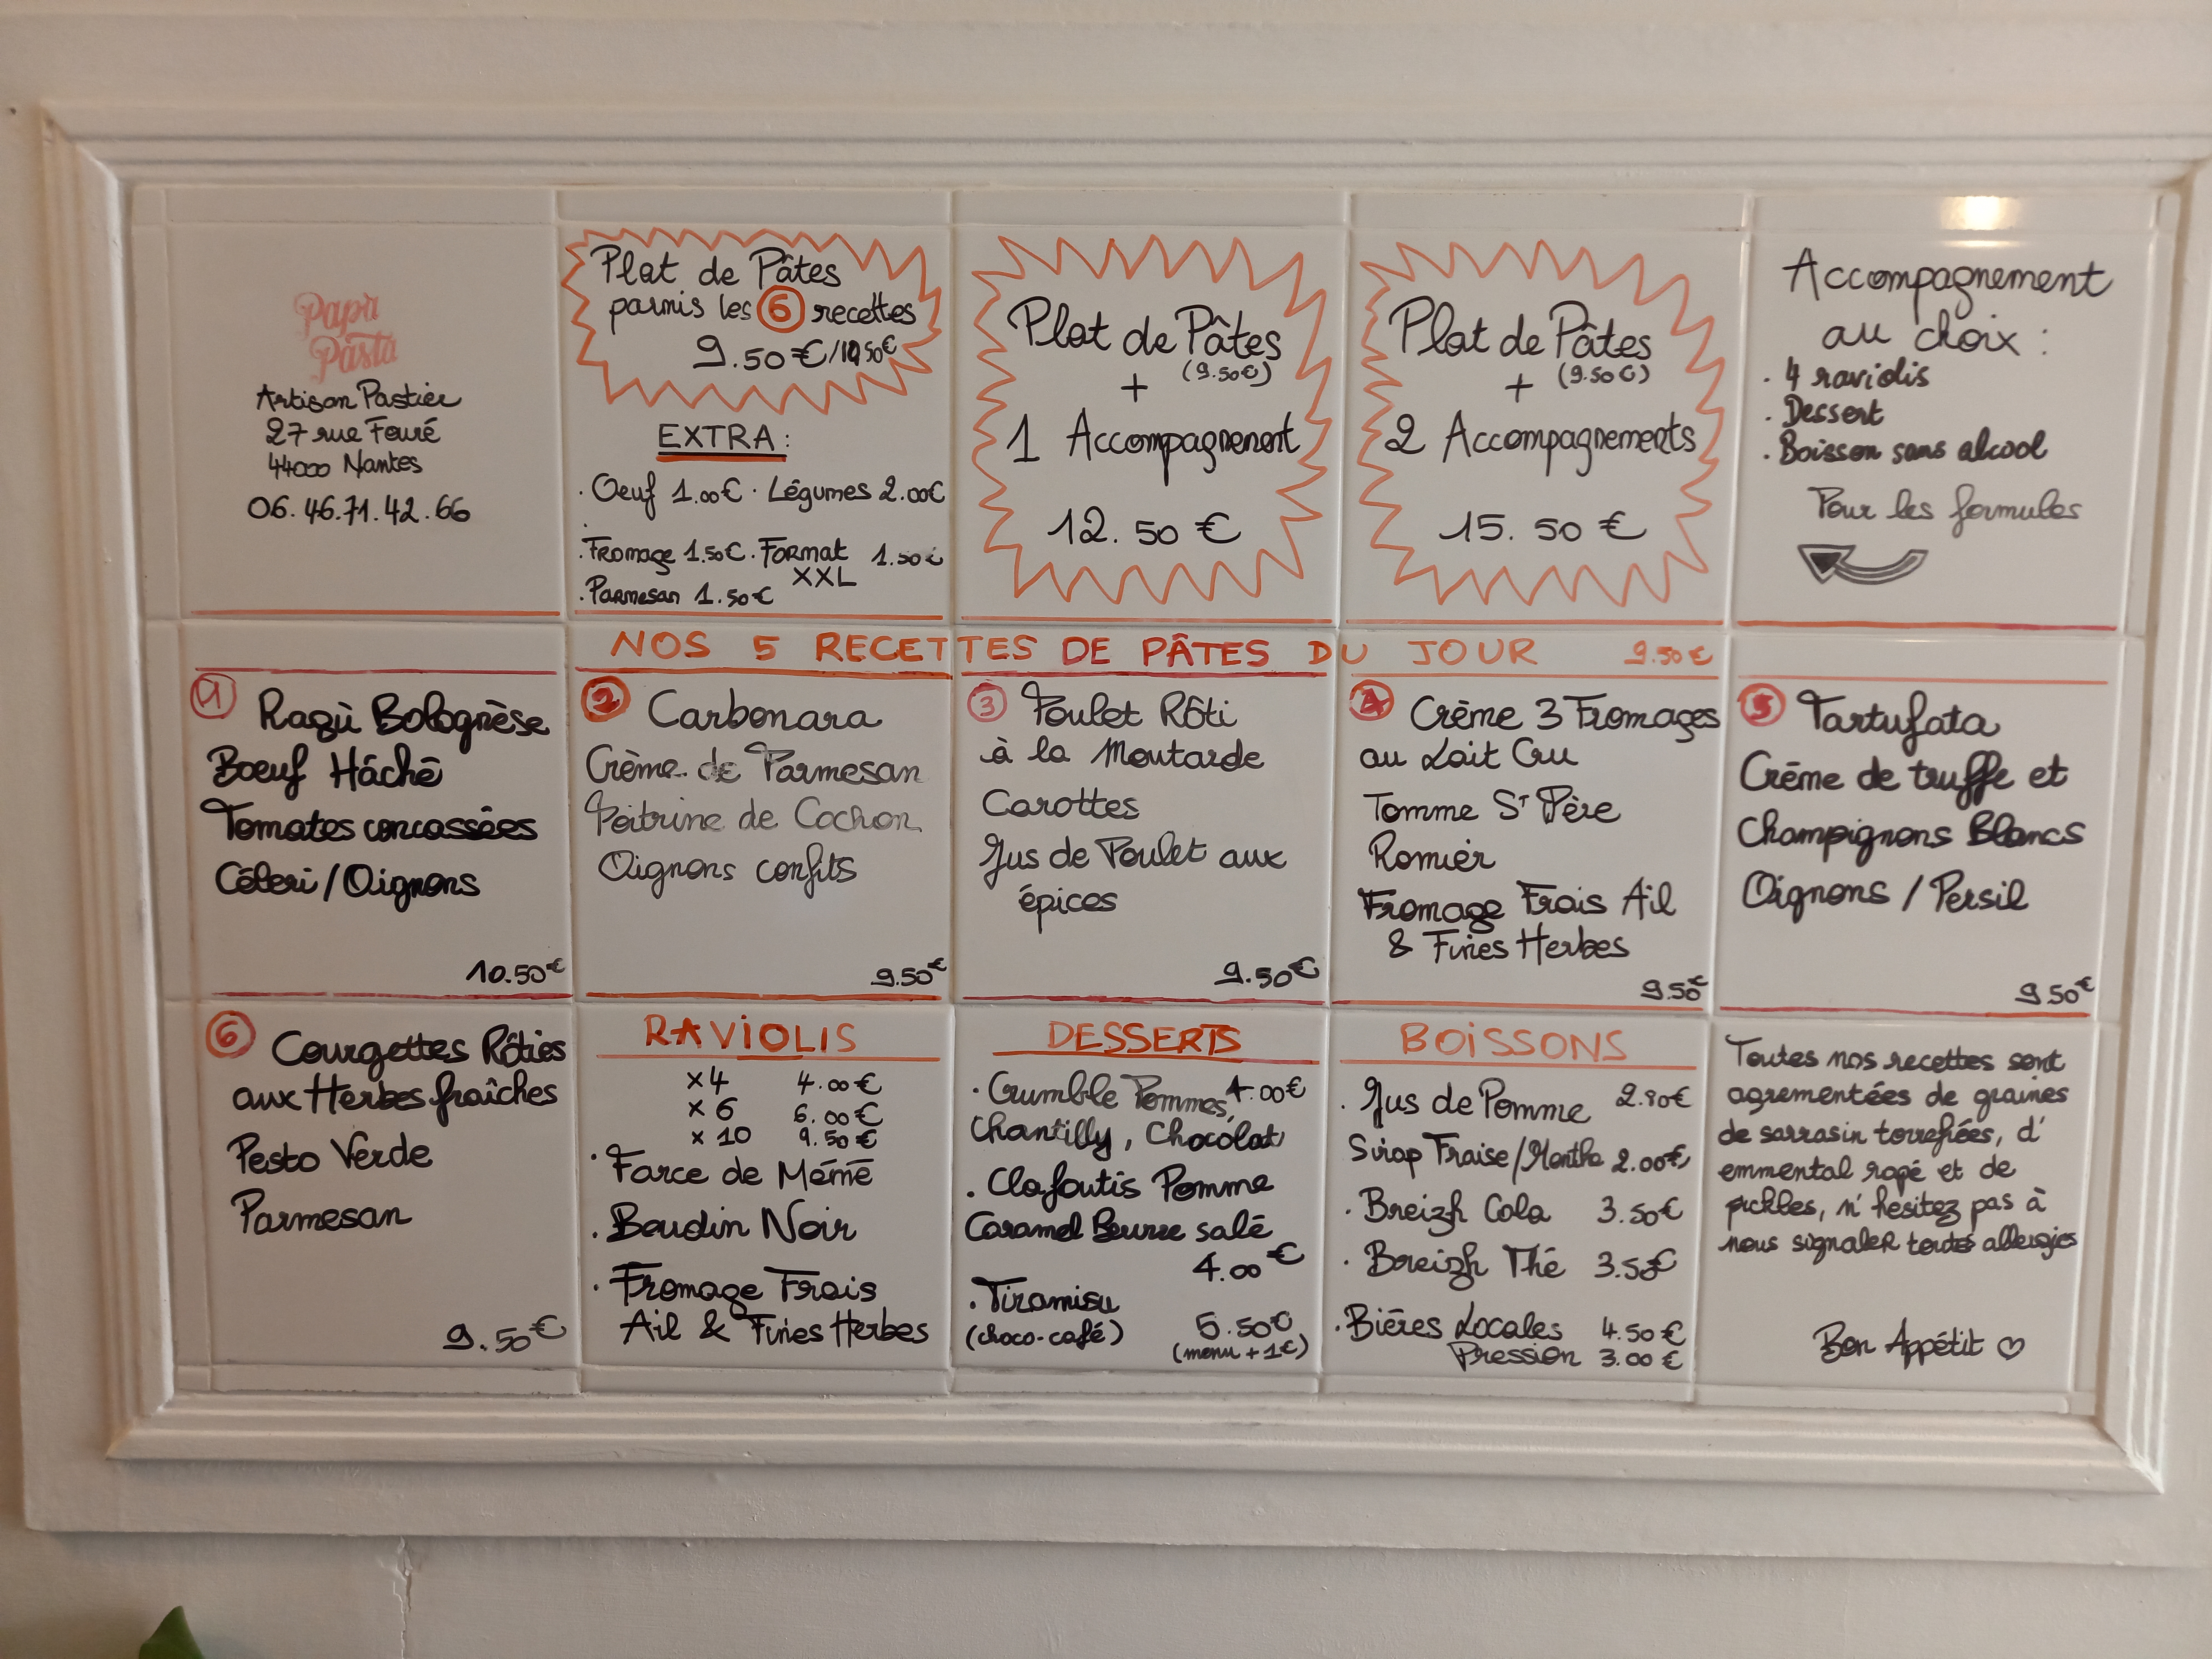 Papa
Pasta
Artisan Pastier
27 rue Fouré
44000 Nantes
06.46.71.42.66
Plat de Pâtes
parmis les 6 recettes
9.50€/10.50€
EXTRA:
. Oeuf 1.00€ . Légumes 2.00€
. Fromage 1.50€ . Format 1.50€
XXL
. Parmesan 1.50€
Plat de Pâtes
+ (9.50€)
1 Accompagnement
12.50 €
Plat de Pâtes
+ (9.50€)
2 Accompagnements
15.50 €
Accompagnement
au choix :
. 4 raviolis
. Dessert
. Boisson sans alcool
Pour les formules
NOS 5 RECETTES DE PÂTES DU JOUR 9.50€
1 Ragù Bolognèse
Boeuf Hâché
Tomates concassées
Céleri/Oignons
10.50€
2 Carbonara
Crème de Parmesan
Poitrine de Cochon
Oignons confits
9.50€
3 Poulet Rôti
à la Moutarde
Carottes
Jus de Poulet aux
épices
9.50€
4 Crème 3 Fromages
au Lait Cru
Tomme St Père
Romier
Fromage Frais Ail
& Fines Herbes
9.50€
5 Tartufata
Crème de truffe et
Champignons Blancs
Oignons / Persil
9.50€
6 Courgettes Rôties
aux Herbes fraîches
Pesto Verde
Parmesan
9.50€
RAVIOLIS
x4 4.00€
x 6 6.00€
x 10 9.50€
. Farce de Mémé
. Boudin Noir
. Fromage Frais
Ail & Fines Herbes
DESSERTS
. Crumble Pommes, 4.00€
Chantilly, Chocolat
. Clafoutis Pomme
Caramel Beurre salé
4.00€
. Tiramisu
(choco-café) 5.50€
(menu + 1€)
BOISSONS
. Jus de Pomme 2.80€
Sirop Fraise/Menthe 2.00€
. Breizh Cola 3.50€
. Breizh Thé 3.50€
. Bières Locales 4.50€
Pression 3.00€
Toutes nos recettes sont
agrementées de graines
de sarrasin torrefiées, d'
emmental rapé et de
pickles, n'hesitez pas à
nous signaler toutes allergies
Bon Appétit ♡